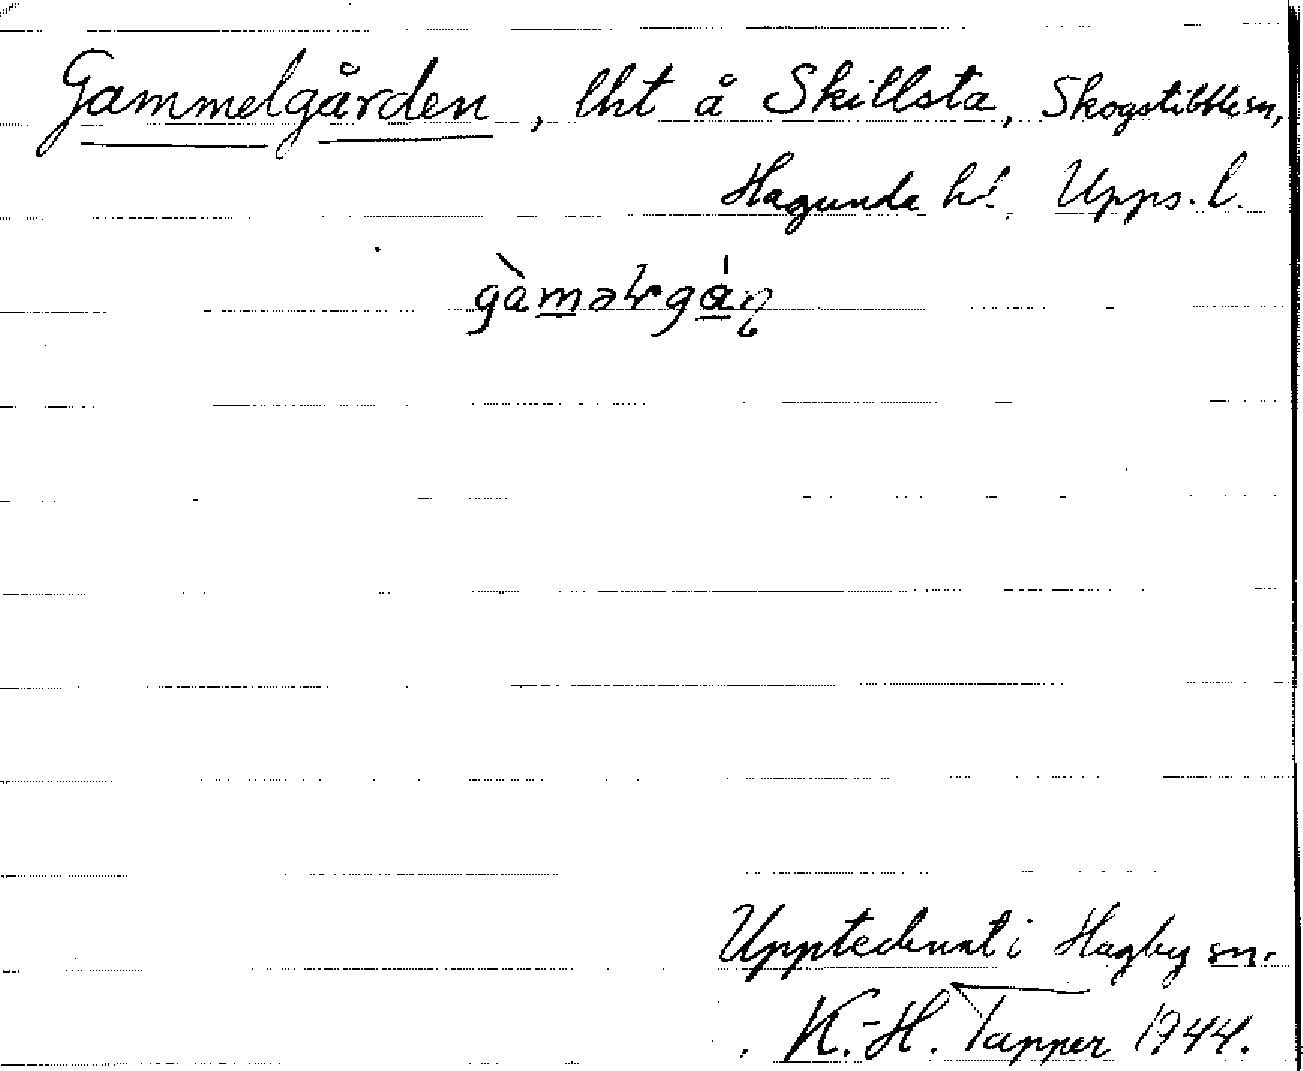 Gammelgården, lht å Skillsta, Skogstibble sn,
Hagunda hd. Upps. l.
gàmələgán
Upptecknat i Hagby sn.
K.-H. Tapper 1944.